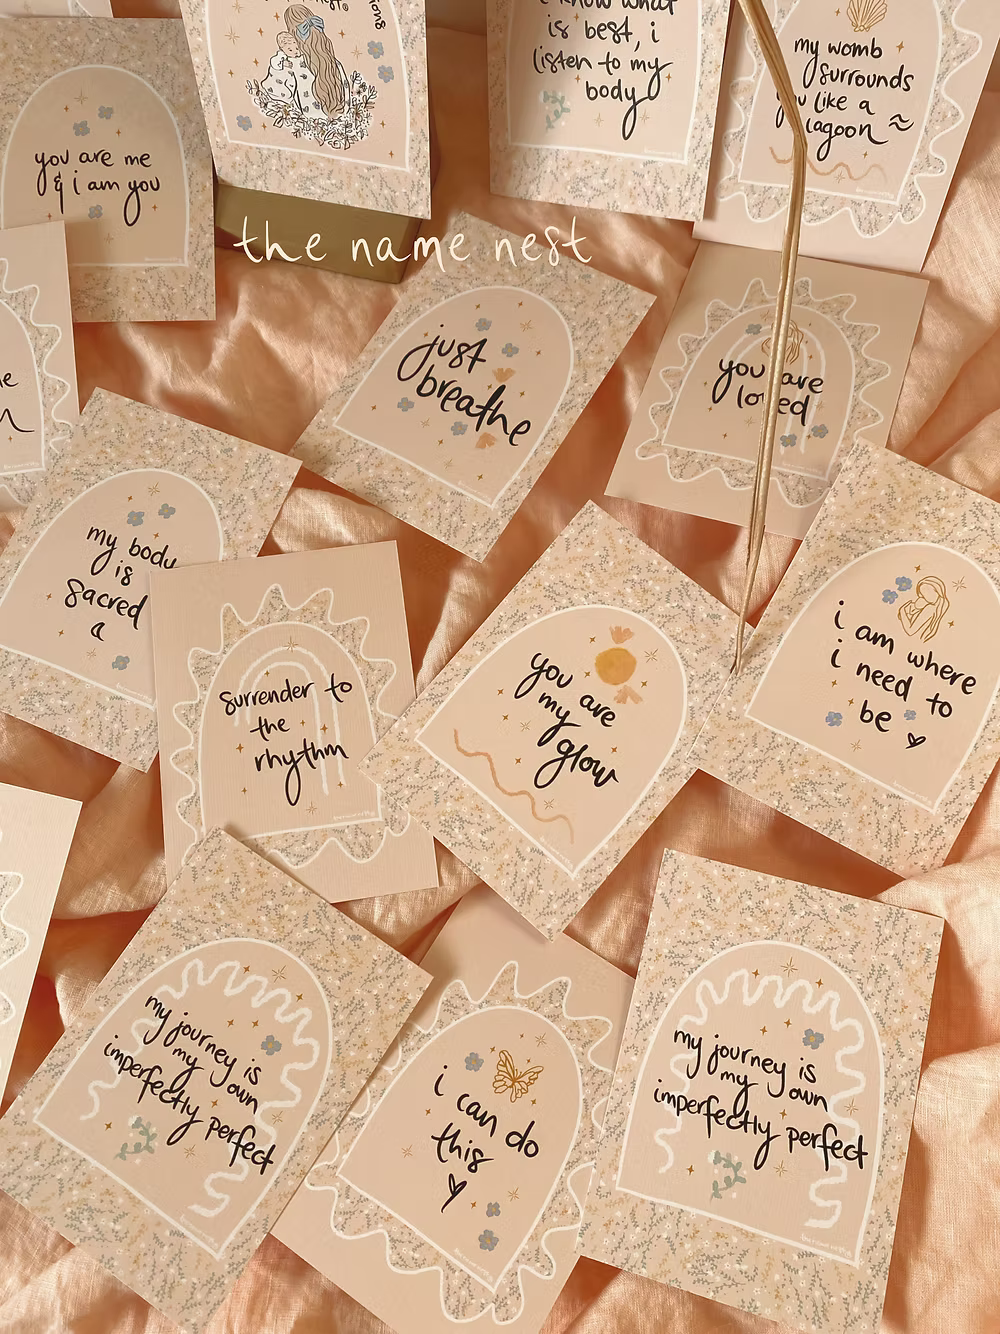 i know what
is best, i
listen to my
body
my womb
surrounds
you like a
lagoon
you are me
& i am you
the name nest
just
breathe
you are
loved
my body
is
sacred
i am where
i need to
be
surrender to
the
rhythm
you are
my
glow
my journey is
my own
imperfectly perfect
i can do
this
my journey is
my own
imperfectly perfect